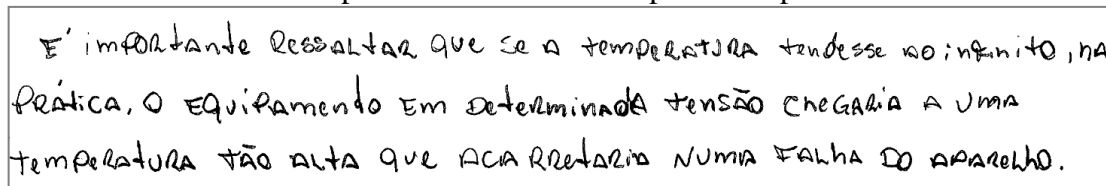 E' importante ressaltar que se a temperatura tendesse ao infinito, na
prática, o equipamento em determinada tensão chegaria a uma
temperatura tão alta que acarretaria numa falha do aparelho.